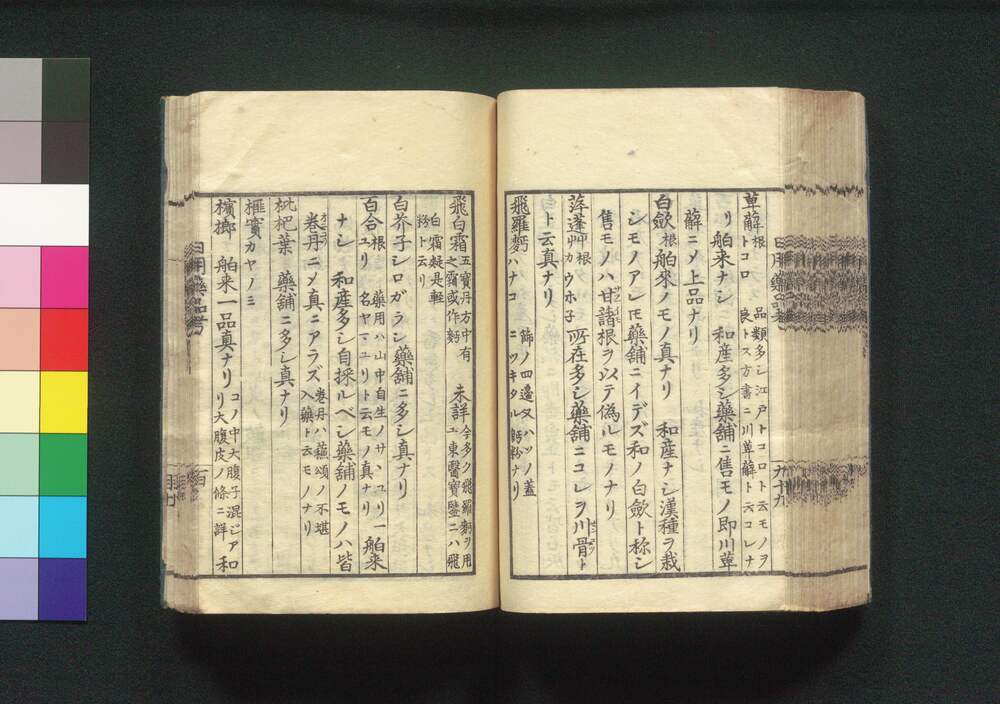 萆薢 根 トコロ 品類多シ江戸トコロト云モノヲ
良トス方書ニ川萆薢ト云コレナ
リ 舶来ナシ 和産多シ藥舗ニ售モノ即川萆
薢ニメ上品ナリ
白歛 根 舶來ノモノ真ナリ 和産ナシ漢種ヲ栽
シモノアレ𪜈藥舗ニイデズ和ノ白歛ト称シ
售モノハ甘藷根ヲ以テ偽ルモノナリ
萍蓬艸 根 カウホ子 所在多シ藥舗ニコレヲ川骨ト
ト云真ナリ
飛羅麪 ハナコ 飾ノ四邊又ハツノ蓋
ニツキタル麪粉ナリ
飛白霜 五寳丹方中有
白霜疑是輕
粉ト云リ 之霜或作麪 未詳 今多ク飛羅麪ヲ用
ユ東醫寳鑒ニハ飛
白芥子 シロガラシ 藥舗ニ多シ真ナリ
百合 根 ユリ 藥用ハ山中自生ノサヽユリ一
名ヤマユリト云モノ真ナリ 舶来
ナシ 和産多シ自採ルベシ藥舗ノモノハ皆
巻丹ニメ真ニアラズ 巻丹ハ蘓頌ノ不堪
入藥ト云モノナリ
枇杷葉 藥舗ニ多シ真ナリ
榧實 カヤノミ
檳榔 舶来一品真ナリ コノ中大腹子混ジア
リ大腹皮ノ條ニ詳 和
九十九
一百